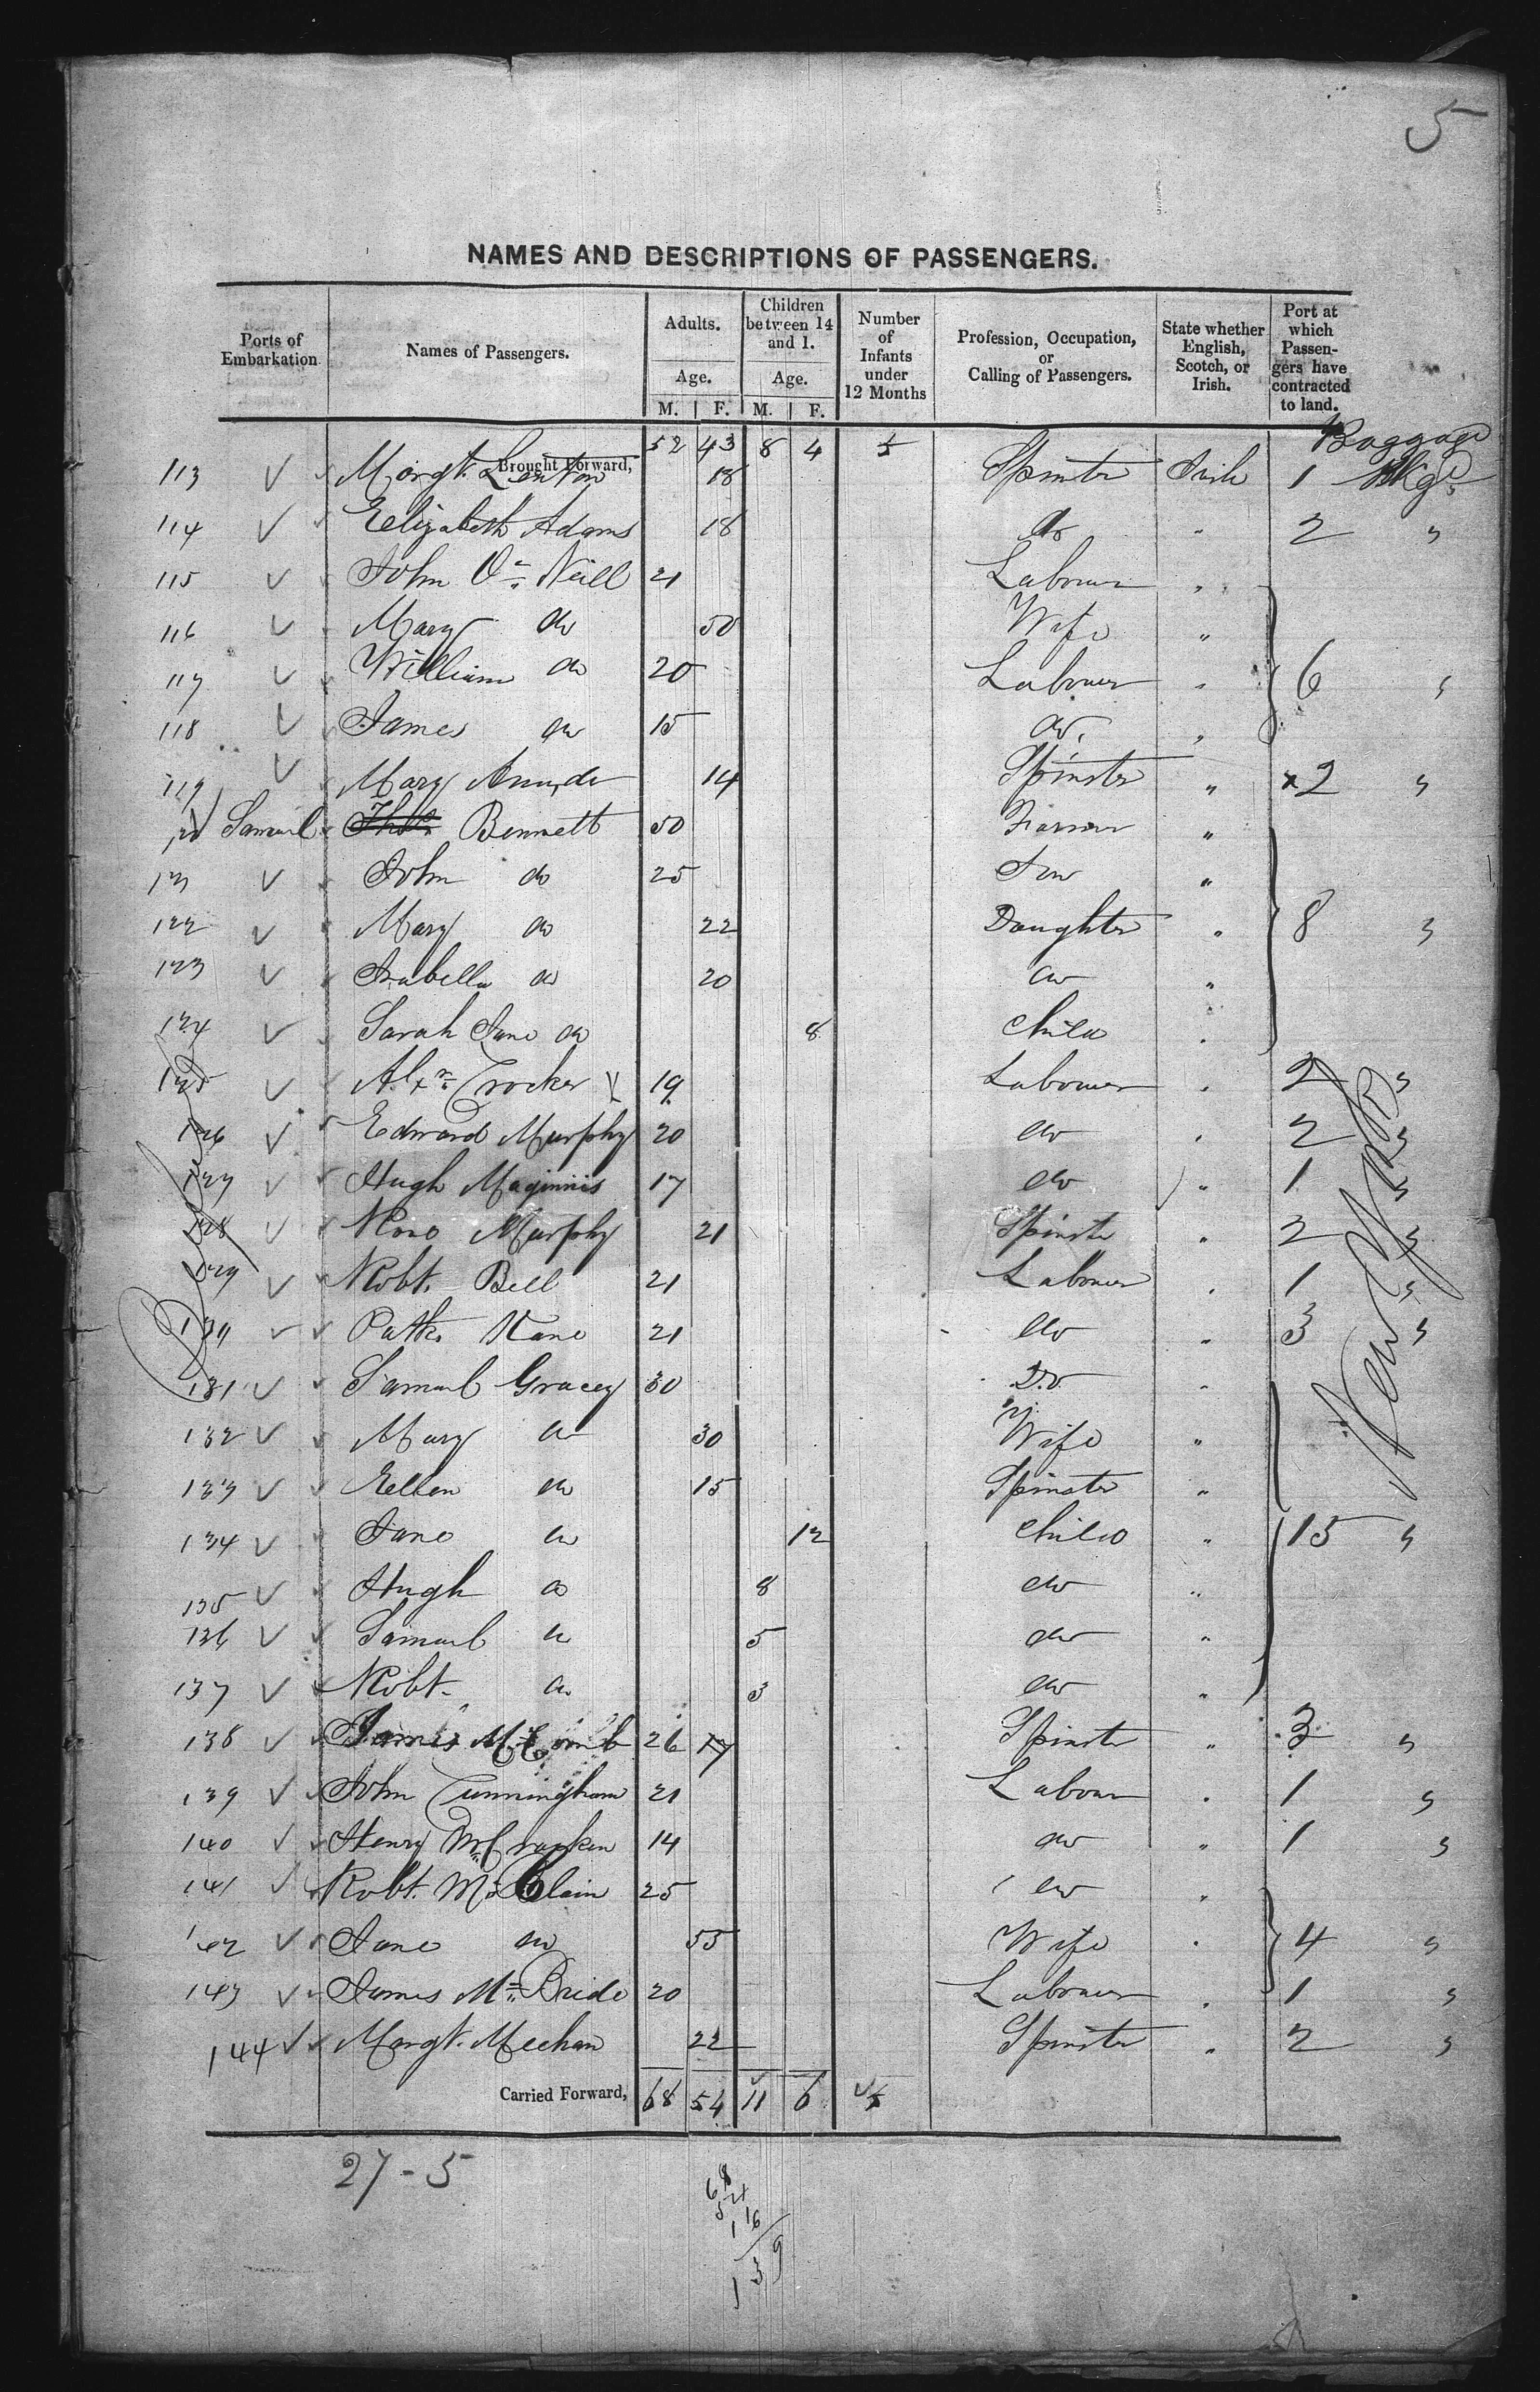 5
NAMES AND DESCRIPTIONS OF PASSENGERS.
Ports of Embarkation
Names of Passengers.
Adults. Age. M. F.
Children between 14 and 1. Age. M. F.
Number of Infants under 12 Months
Profession, Occupation, or Calling of Passengers.
State whether English, Scotch, or Irish.
Port at which Passengers have contracted to land.
Brought Forward, 52 43 8 4 5 Baggage
113 Margt. Lenton 18 Spinster Irish 1 Pkgs
114 Elizabeth Adams 18 do " 2 "
115 John O'Neill 21 Labourer "
116 Mary do 50 Wife "
117 William do 20 Labourer " 6 "
118 James do 15 do "
119 Mary Ann do 14 Spinster " x2 "
120 Samuel Thos. Bennett 50 Farmer "
121 John do 25 Son "
122 Mary do 22 Daughter " 8 "
123 Isabella do 20 do "
124 Sarah Jane do 8 Child "
125 Alexr. Crocker 19 Labourer " 2 "
126 Edward Murphy 20 do " 2 "
127 Hugh Maginnis 17 do " 1 "
128 Rose Murphy 21 Spinster " 2 "
129 Robt. Bell 21 Labourer " 1 "
130 Patk. Kane 21 do " 3 "
131 Samuel Gracey 30 Do "
132 Mary do 30 Wife "
133 Ellen do 15 Spinster "
134 Jane do 12 Child " 15 "
135 Hugh do 8 do "
136 Samuel do 5 do "
137 Robt. do 3 do "
138 James McComb 26 17 Spinster " 3 "
139 John Cunningham 21 Labour " 1 "
140 Henry McCracken 14 do " 1 "
141 Robt. McClain 25 do "
142 Jane do 55 Wife " 4 "
143 James McBride 20 Labourer " 1 "
144 Margt. Meehan 22 Spinster " 2 "
New York
Carried Forward, 68 54 11 6 5
27-5
68
54
16
139